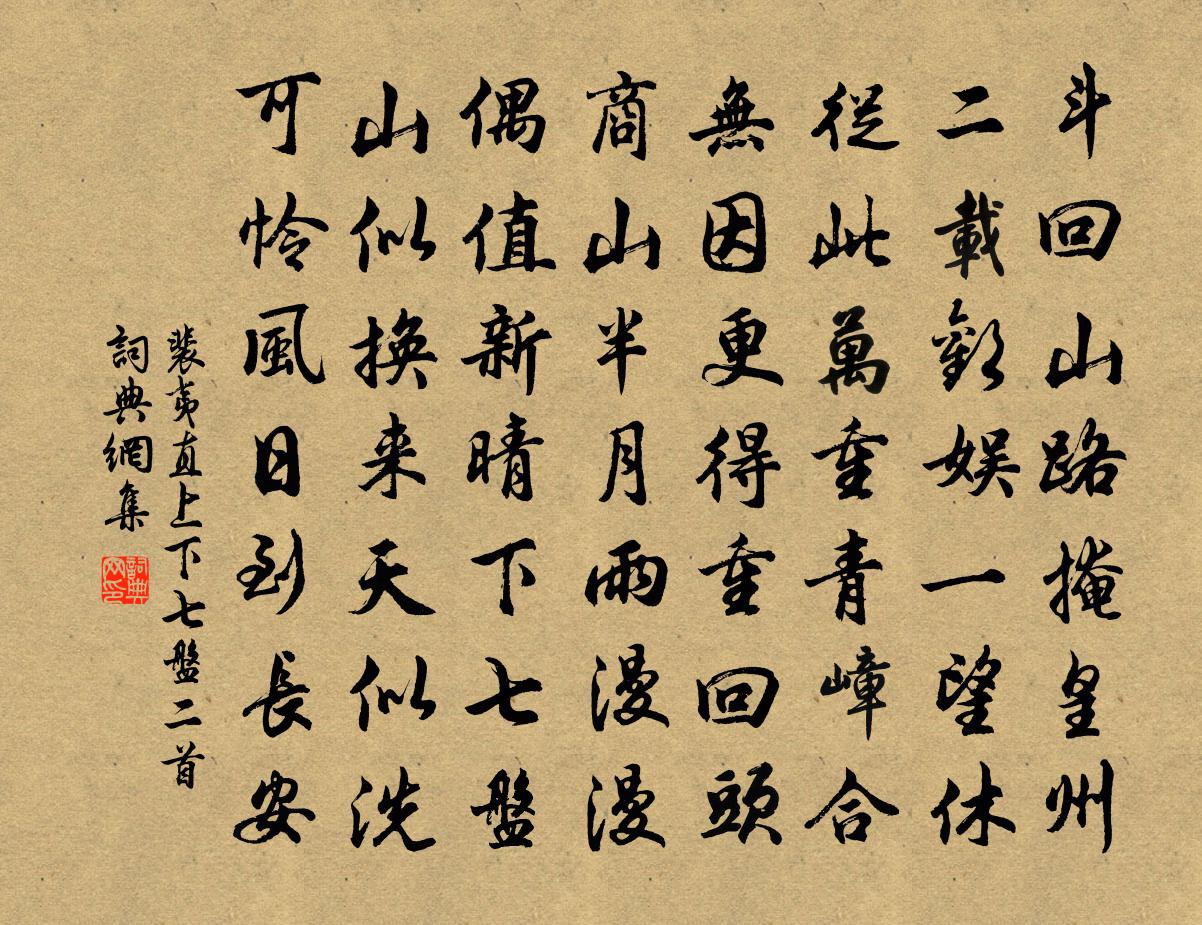 斗回山路掩皇州
二載歡娛一望休
從此萬重青嶂合
無因更得重回頭
商山半月雨漫漫
偶值新晴下七盤
山似換来天似洗
可怜風日到長安
裴夷直上下七盤二首
詞典網集
詞典網印